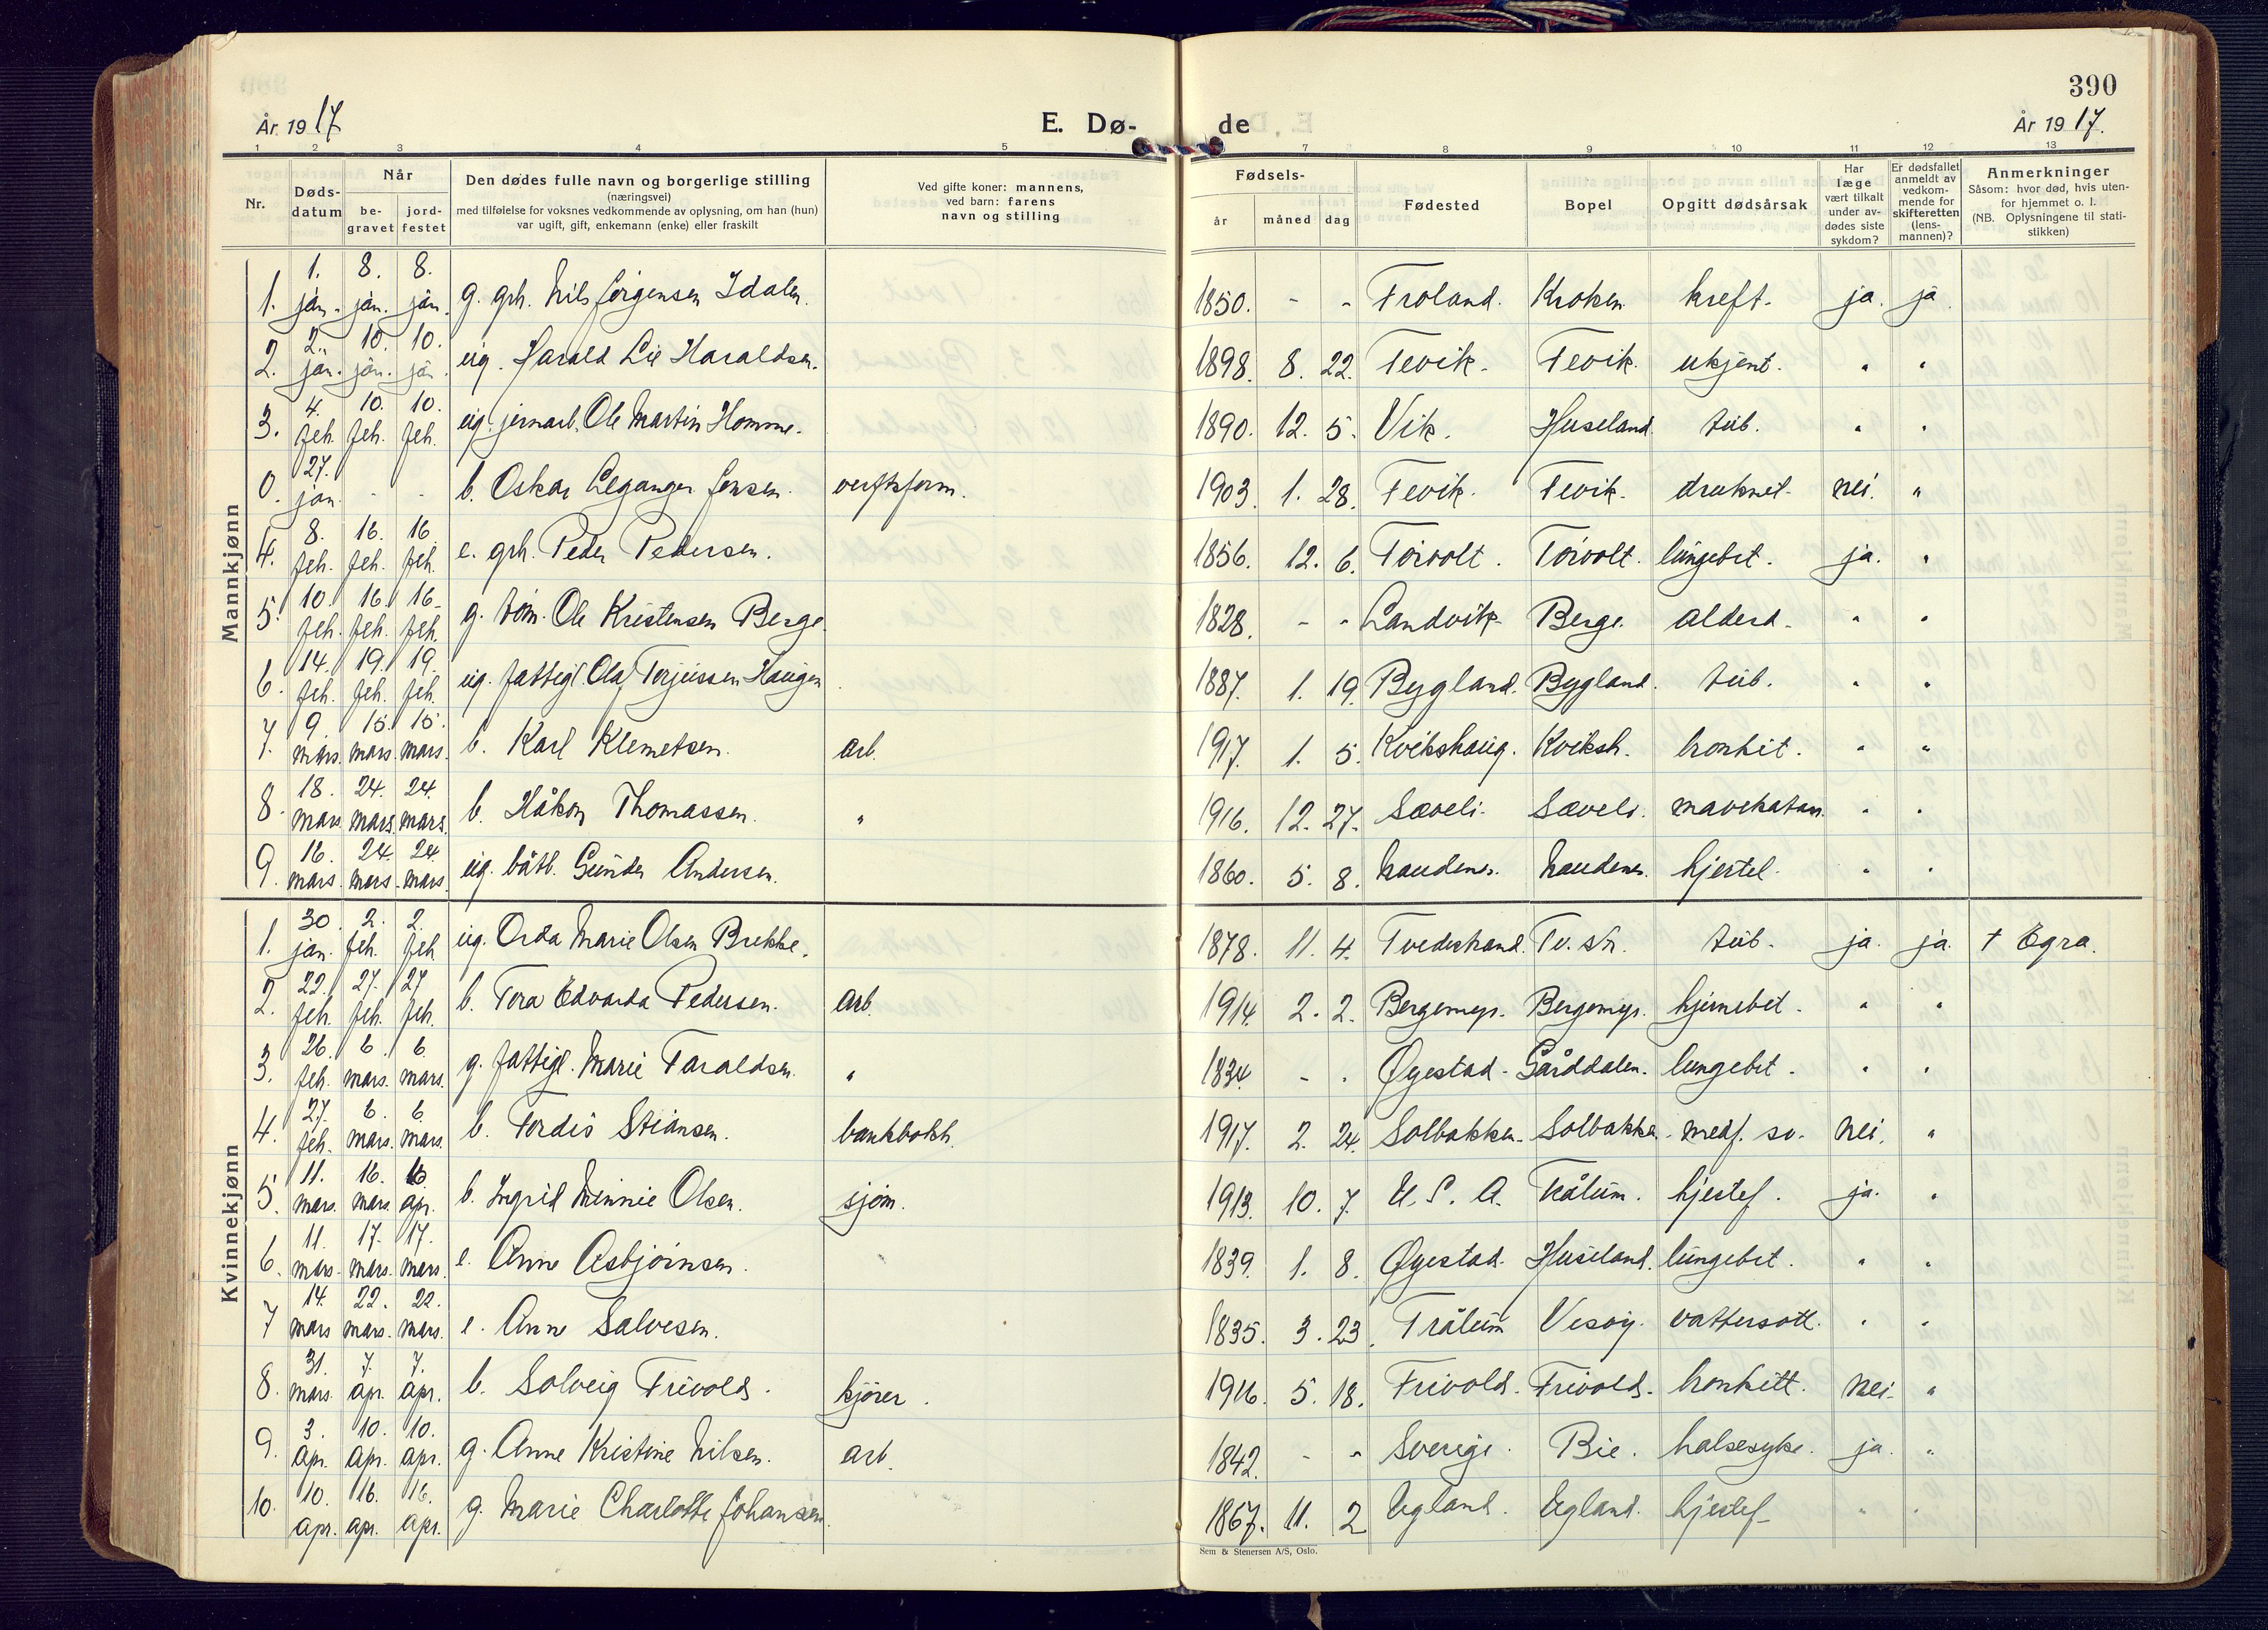 390
År 1917 E. Dø- de År 1917.
1 2 3 4 5 7 8 9 10 11 12 13
Nr. Døds-datum Når be-gravet jord-festet Den dødes fulle navn og borgerlige stilling (næringsvei) med tilføielse for voksnes vedkommende av oplysning, om han (hun) var ugift, gift, enkemann (enke) eller fraskilt Ved gifte koner: mannens, ved barn: farens navn og stilling Fødsels- år måned dag Fødested Bopel Opgitt dødsårsak Har læge vært tilkalt under av-dødes siste sykdom? Er dødsfallet anmeldt av vedkom-mende for skifteretten (lens-mannen)? Anmerkninger Såsom: hvor død, hvis uten-for hjemmet o. l. (NB. Oplysningene til stati-stikken)
Mannkjønn
1. 1. jan. 8. jan. 8. jan. g. grh. Nils Jørgensen Idalen. 1850. - - Froland. Kroken kreft. ja. ja.
2. 2. jan. 10. jan. 10. jan. ug. Harald Lie Haraldsen. 1898. 8. 22. Fevik. Fevik. ukjent. " "
3. 4. feb. 10. feb. 10. feb. ug. jernarb. Ole Martin Homme. 1890. 12. 5. Vik. Huseland. tub. " "
0. 27. jan. - - b. Oskar Leganger Jensen. verftsform. 1903. 1. 28. Fevik. Fevik. druknet. nei. "
4. 8. feb. 16. feb. 16. feb. e. grh. Peder Pedersen. 1856. 12. 6. Törvolt. Törvolt. lungebet. ja. "
5. 10. feb. 16. feb. 16. feb. g. töm. Ole Kristensen Berge. 1828. - - Landvik. Berge. alderd. " "
6. 14. feb. 19. feb. 19. feb. ug. fattigl. Olaf Terjussen Haugen. 1887. 1. 19. Bygland. Bygland. tub. " "
7. 9. mars. 15. mars. 15. mars. b. Karl Klemetsen. arb. 1917. 1. 5. Kvikshaug. Kviksh. bronkit. " "
8. 18. mars. 24. mars. 24. mars. b. Håkon Thomassen. " 1916. 12. 27. Sæveli. Sæveli. mavekatarr. " "
9. 16. mars. 24. mars. 24. mars. ug. båtb. Gunder Andersen. 1860. 5. 8. Naudenes. Naudenes. hjertel. " "
Kvinnekjønn
1. 30. jan. 2. feb. 2. feb. ug. Orda Marie Olsen Brekke. 1878. 11. 4. Tvedestrand. Tv. str. tub. ja. ja. † Egra.
2. 22. feb. 27. feb. 27. feb. b. Tora Edvarda Pedersen. arb. 1914. 2. 2. Bergemyr. Bergemyr. hjernebet. " "
3. 26. feb. 6. mars. 6. mars. g. fattigl. Marie Taraldsen. " 1834. - - Øyestad. Gårddalen. lungebet. " "
4. 27. feb. 6. mars. 6. mars. b. Tordis Stiansen. bankbokh. 1917. 2. 24. Solbakken. Solbakken. medf. sv. nei. "
5. 11. mars. 16. mars. 16. apr. b. Ingrid Minnie Olsen. sjöm. 1913. 10. 7. U. S. A. Trålum. hjertef. ja. "
6. 11. mars. 17. mars. 17. mars. e. Anne Asbjörnsen. 1839. 1. 8. Øyestad. Huseland. lungebet. " "
7 14. mars 22. mars. 22. mars. e. Anne Salvesen. 1835. 3. 23. Trålum Vesöy. vattersott. " "
8. 31. mars. 7. apr. 7. apr. b. Solveig Frivold. kjörer. 1916. 5. 18. Frivold. Frivold. bronkitt. nei. "
9. 3. apr. 10. apr. 10. apr. g. Anne Kristine Nilsen. arb. 1842. - - Sverige. Bie. halsesyke. ja. "
10. 10. apr. 16. apr. 16. apr. g. Marie Charlotte Johansen. 1867. 11. 2 Egland. Egland. hjertef. " "
Sem & Stenersen A/S, Oslo.